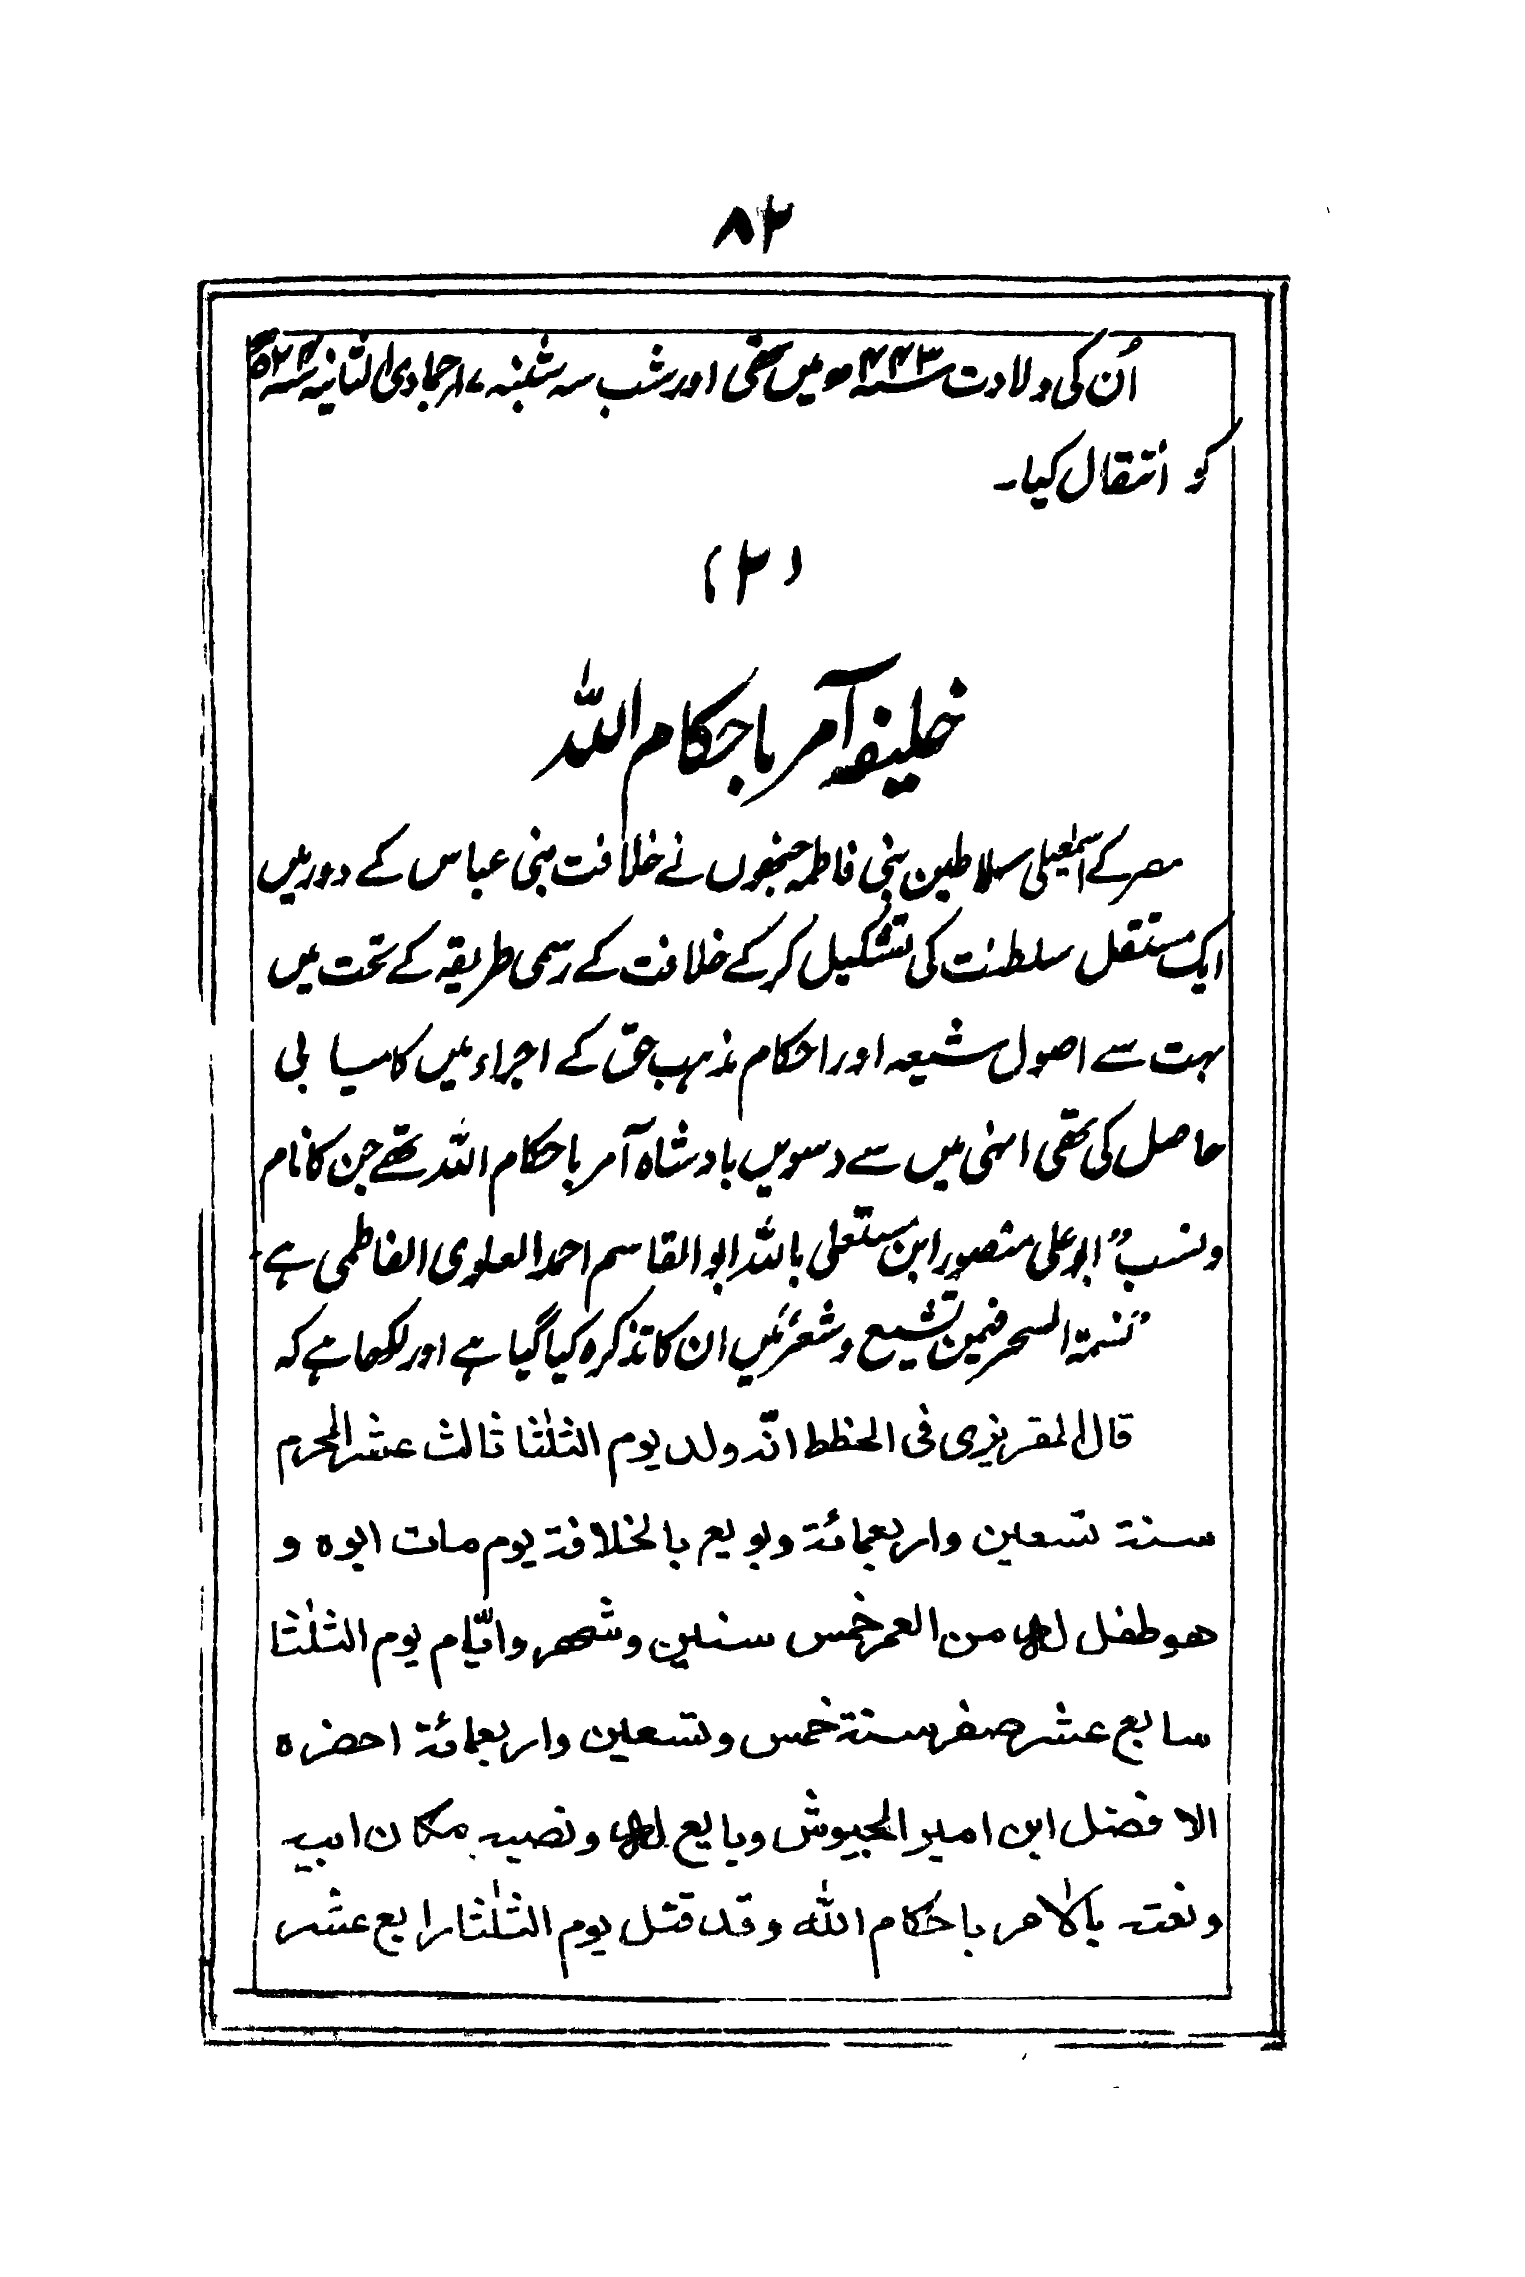 ۸۲
اُن کی ولادت ۴۴۳ھ میں تھی اور شب سہ شنبہ ۱۷ جمادی الثانیہ ۵۲۴ھ
کو انتقال کیا۔
(۲)
خلیفہ آمر باحکام اللہ
مصر کے اسمٰعیلی سلاطین بنی فاطمہ جنھوں نے خلافت بنی عباس کے دور میں
ایک مستقل سلطنت کی تشکیل کر کے خلافت کے رسمی طریقہ کے تحت میں
بہت سے اصول شیعہ اور احکام مذہب حق کے اجراء میں کامیابی
حاصل کی تھی انہی میں سے دسویں بادشاہ آمر باحکام اللہ تھے جن کا نام
و نسب "ابو علی منصور ابن مستعلی باللہ ابو القاسم احمد العلوی الفاطمی ہے۔
"نسمۃ السحر فیمن تشیع و شعر" میں ان کا تذکرہ کیا گیا ہے اور لکھا ہے کہ
قال المقریزی فی الخطط انّہ ولد یوم الثلٰثا ثالث عشر المحرم
سنۃ تسعین واربعمائۃ وبویع بالخلافۃ یوم مات ابوہ و
ھو طفل لہ من العمر خمس سنین وشھر وایّام یوم الثلٰثا
سابع عشر صفر سنۃ خمس وتسعین واربعمائۃ احضرہ
الافضل ابن امیر الجیوش وبایع لہ ونصبہ مکان ابیہ
ونعتہ بالاٰمر باحکام اللہ وقد قتل یوم الثلٰثا رابع عشر